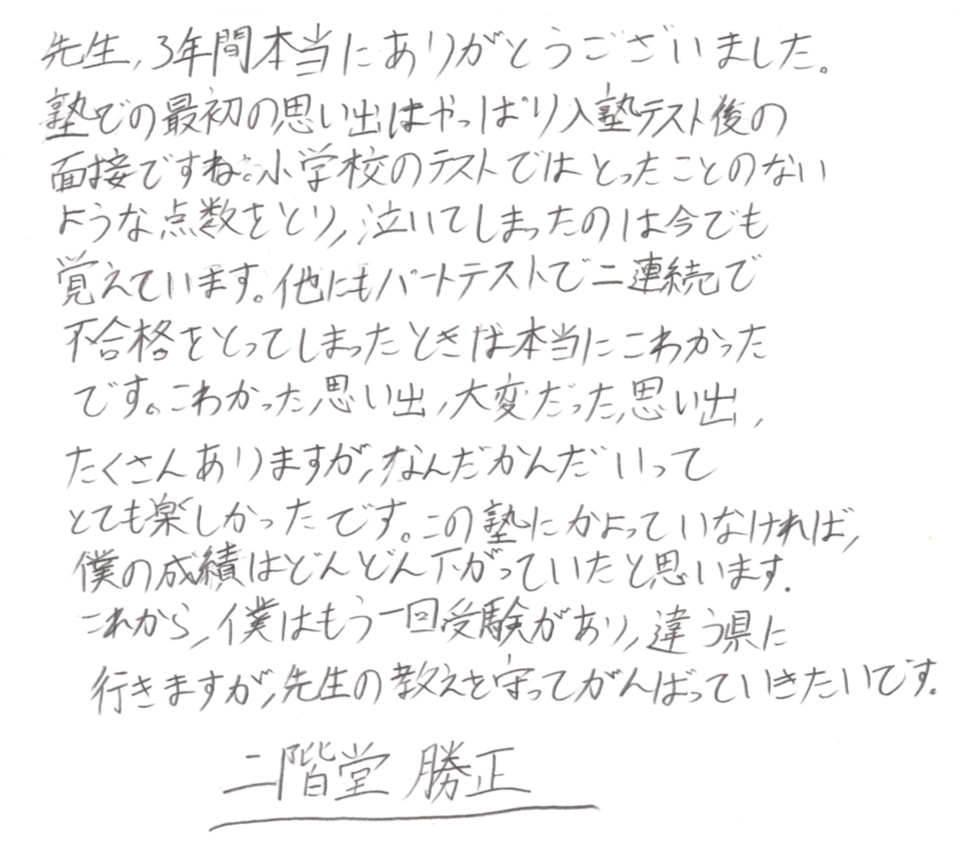 先生,3年間本当にありがとうございました。
塾での最初の思い出はやっぱり入塾テスト後の
面接ですね。小学校のテストではとったことのない
ような点数をとり,泣いてしまったのは今でも
覚えています。他にもパートテストで二連続で
不合格をとってしまったときは本当にこわかった
です。こわかった思い出,大変だった思い出,
たくさんありますが,なんだかんだいって
とても楽しかったです。この塾にかよっていなければ,
僕の成績はどんどん下がっていたと思います.
これから,僕はもう一回受験があり,違う県に
行きますが,先生の教えを守ってがんばっていきたいです.
二階堂 勝正